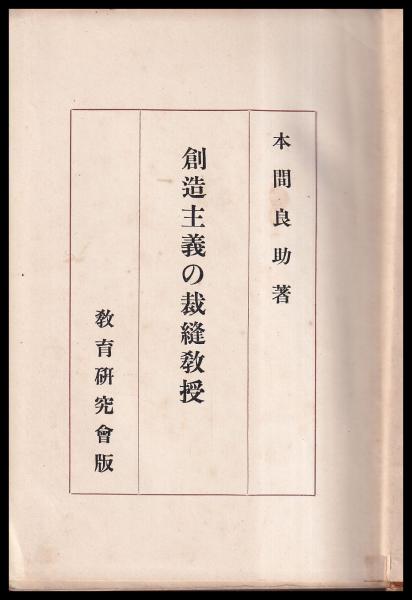 本間良助著
創造主義の裁縫敎授
敎育硏究會版